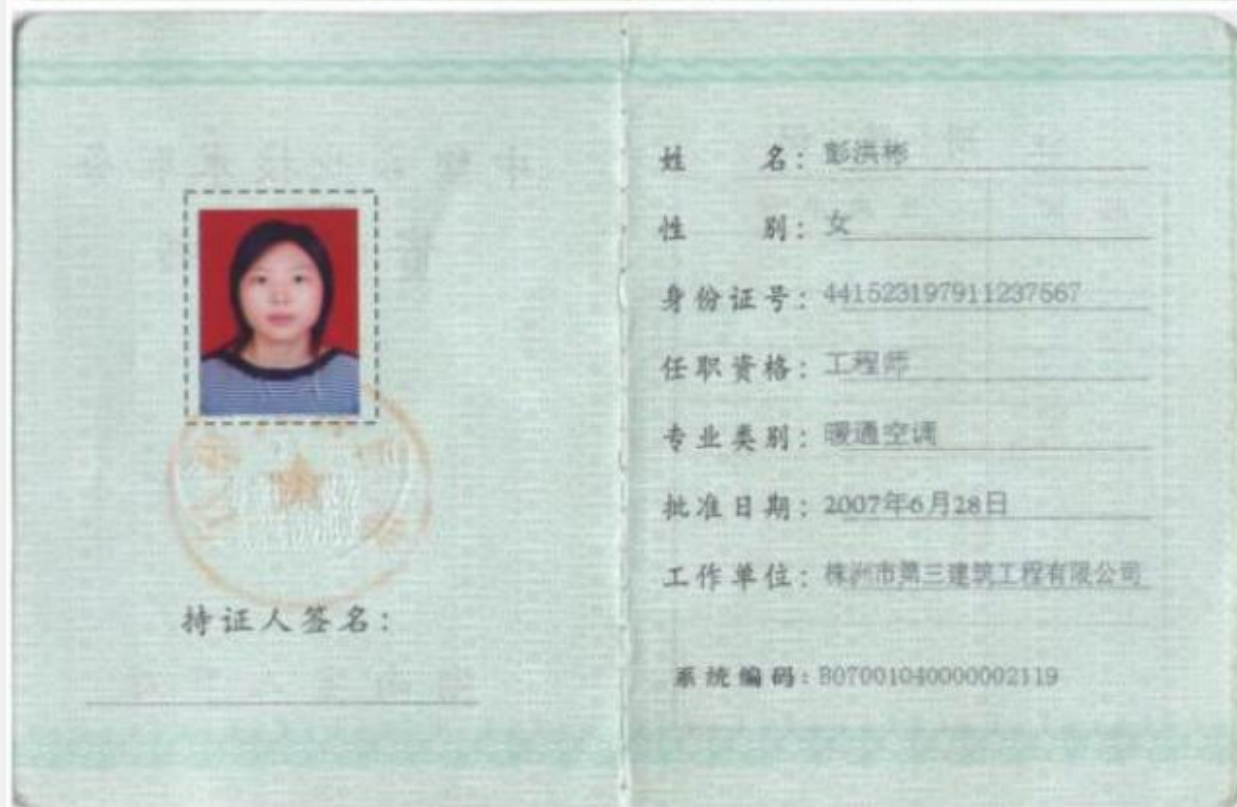 持证人签名:
姓 名: 彭洪彬
性 别: 女
身份证号: 441523197911237567
任职资格: 工程师
专业类别: 暖通空调
批准日期: 2007年6月28日
工作单位: 株洲市第三建筑工程有限公司
系统编码: B07001040000002119